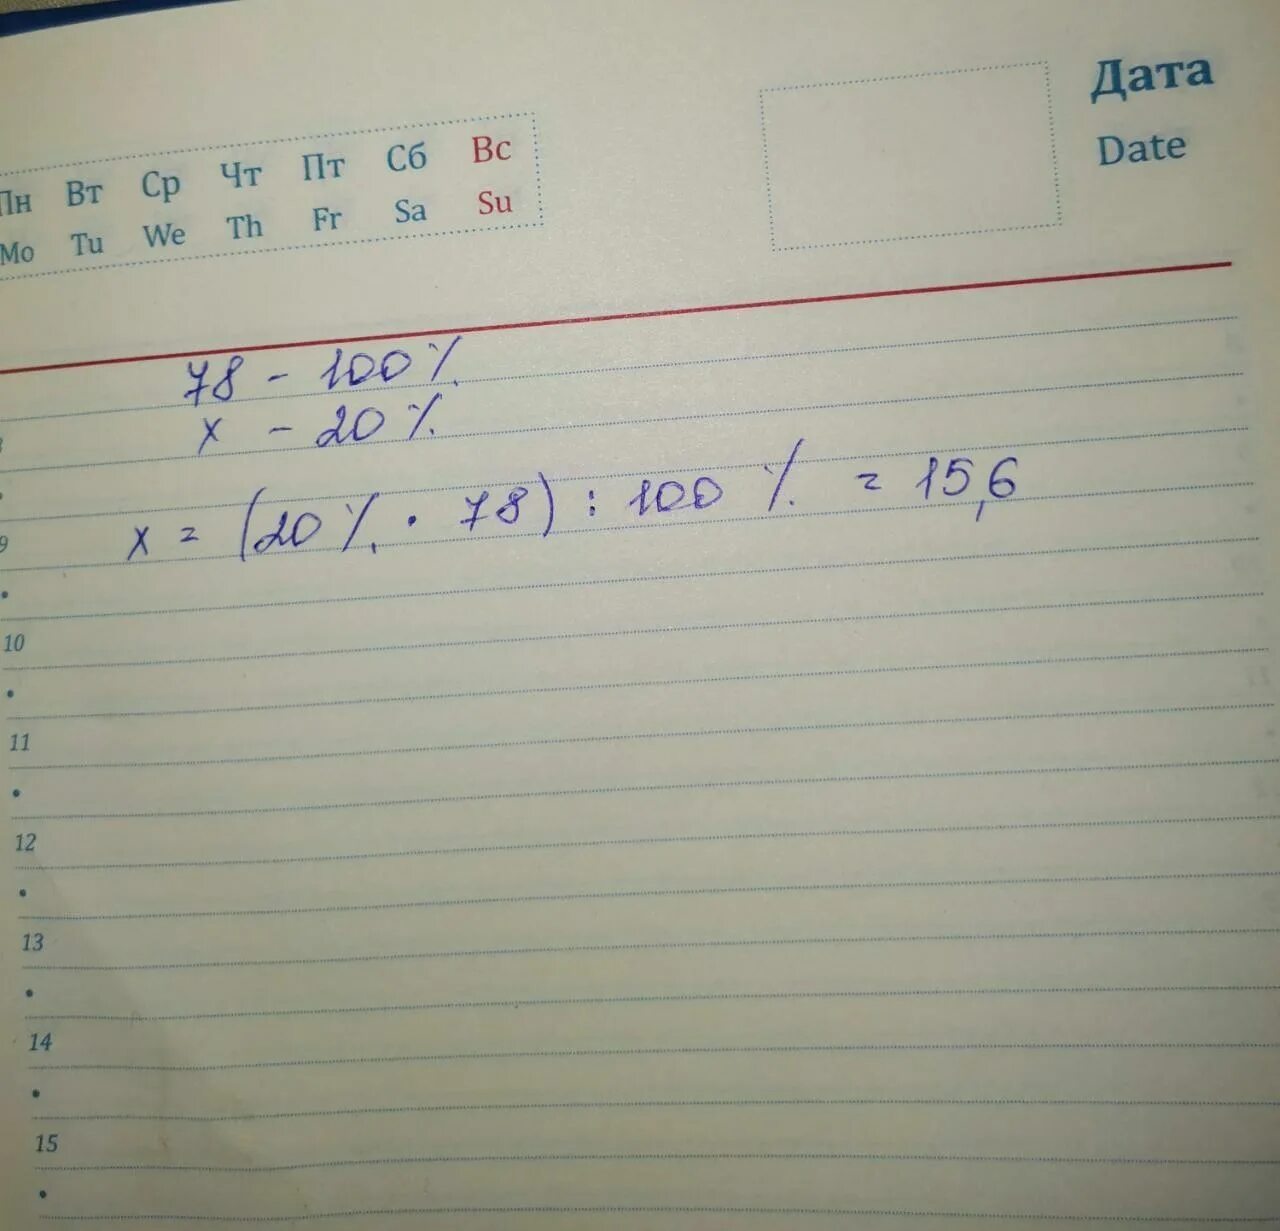 Дата
Date
Пн Вт Ср Чт Пт Сб Вс
Mo Tu We Th Fr Sa Su
78 - 100%
x - 20%
x = (20% · 78) : 100% = 15,6
9
10
11
12
13
14
15